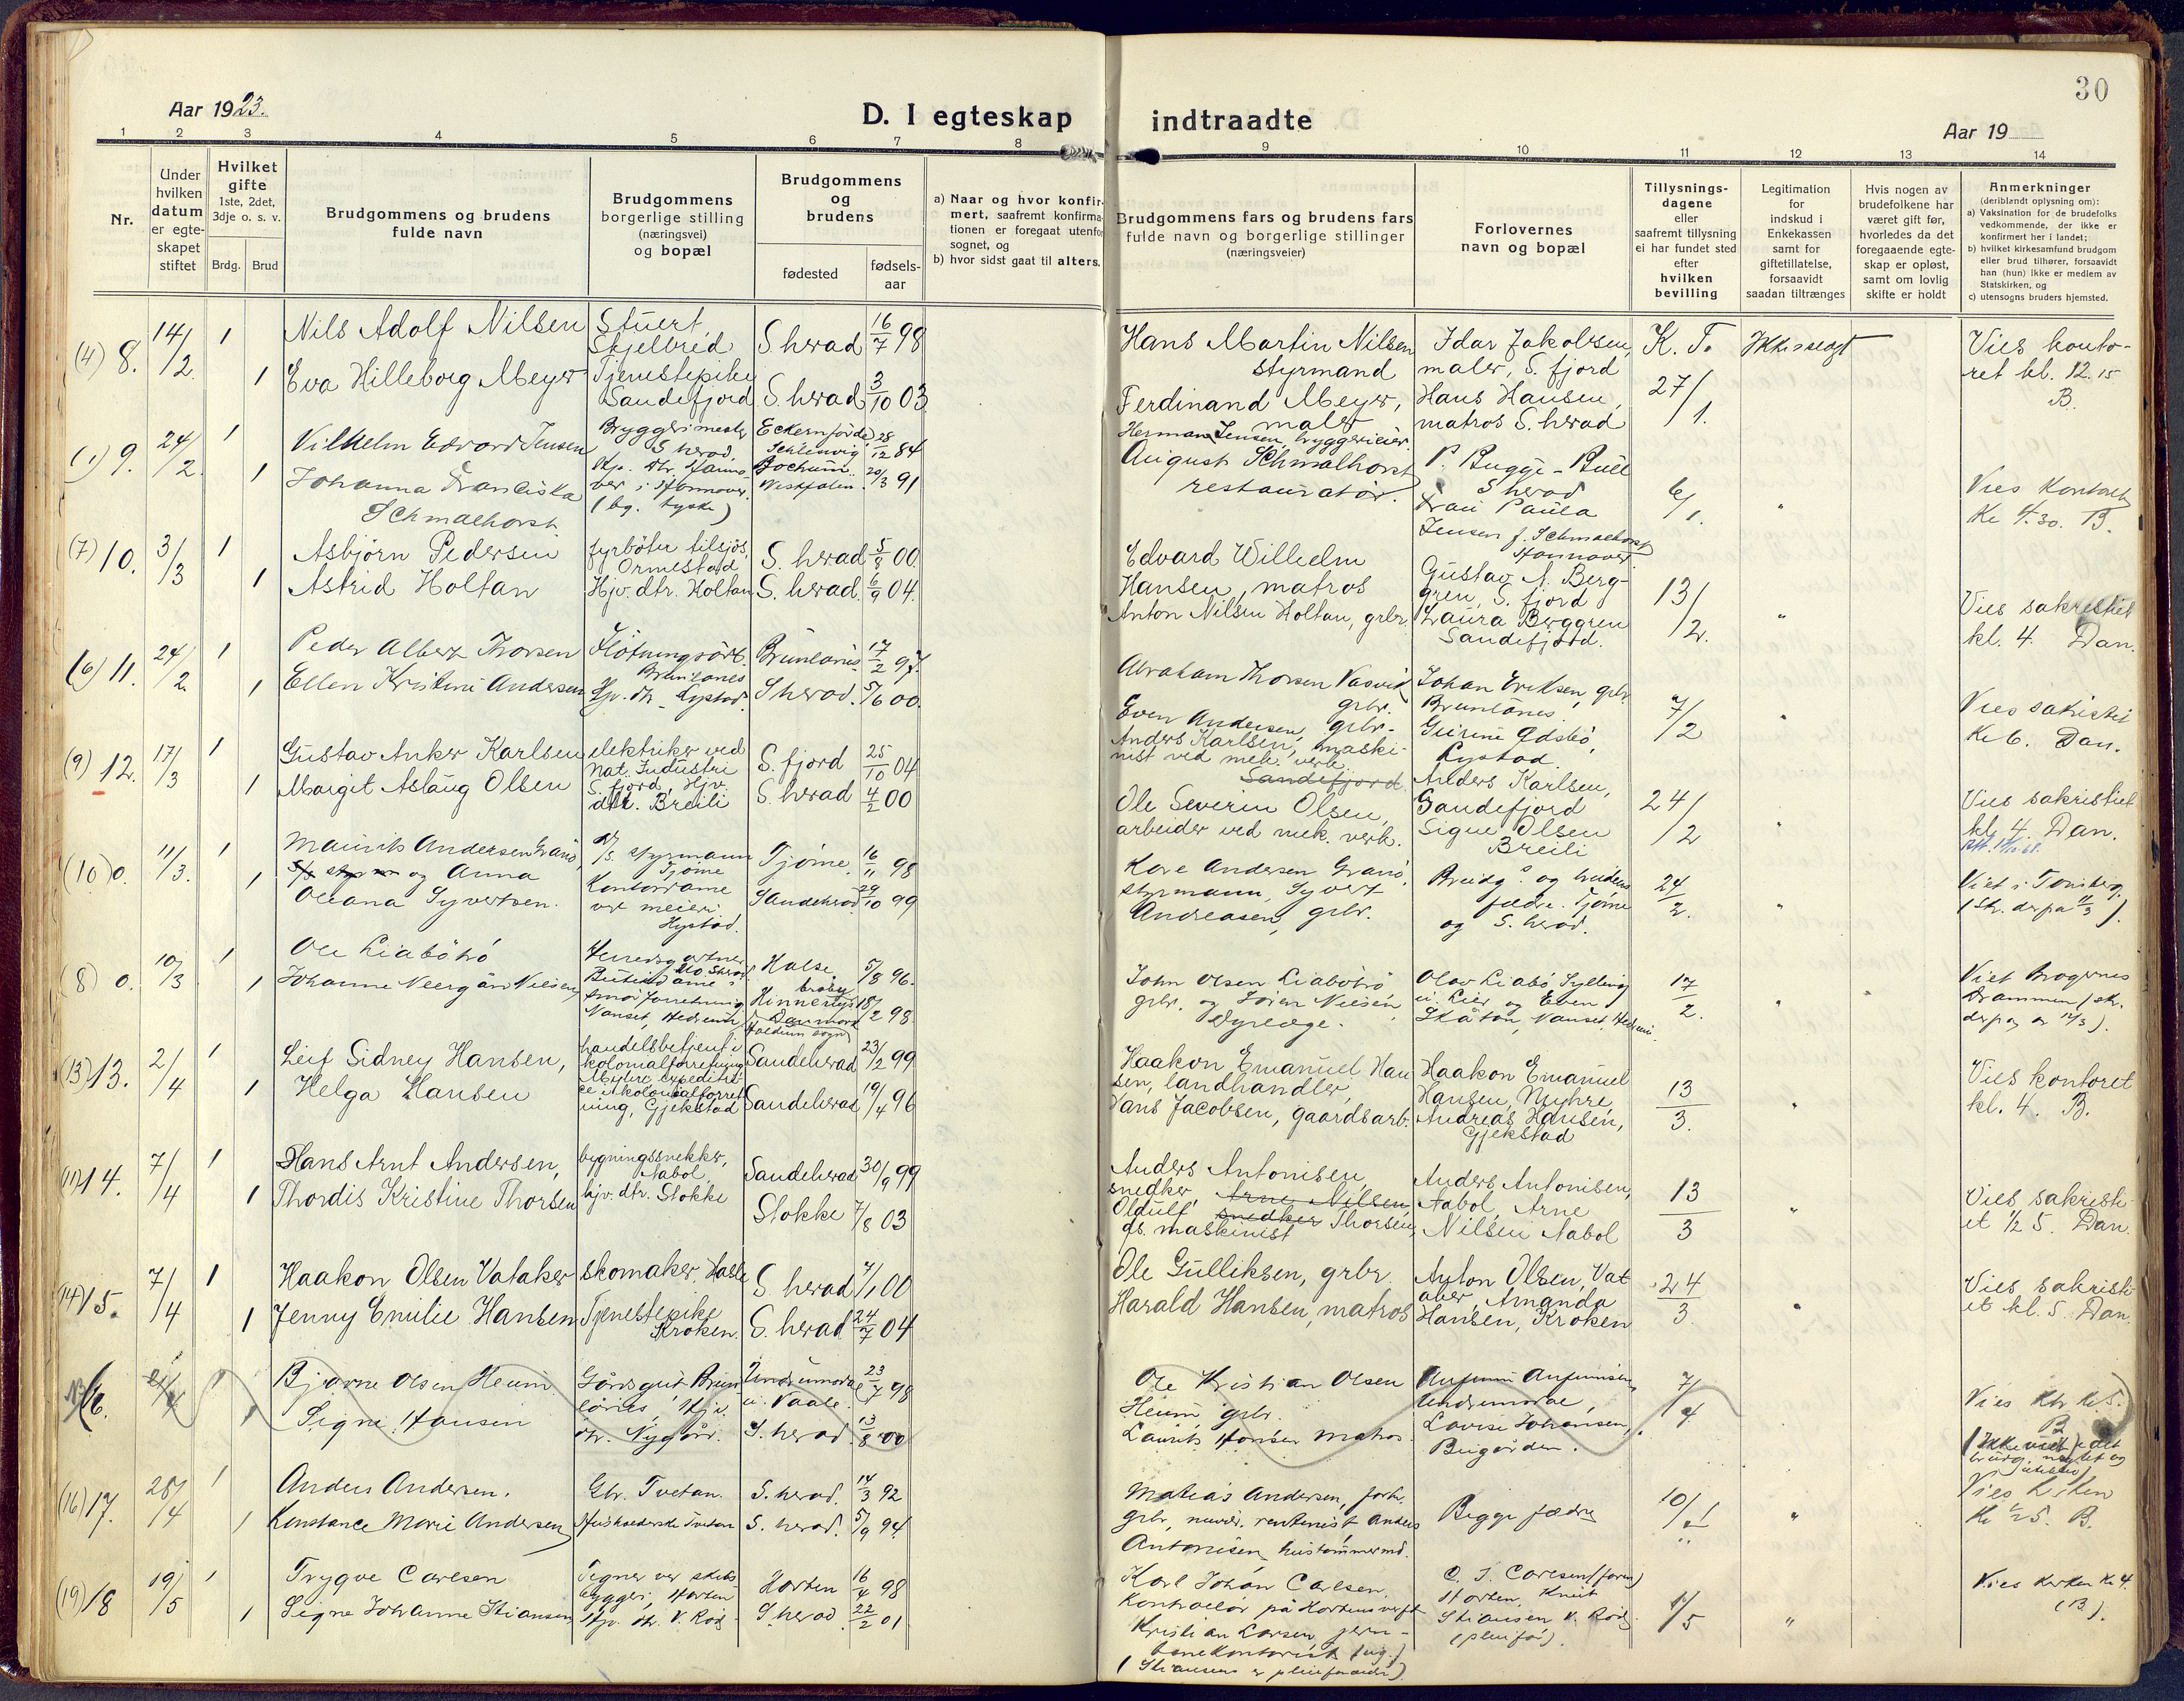 30
Aar 1923.
D. I egteskap indtraadte
Aar 19
1 2 3 4 5 6 7 8 9 10 11 12 13 14
Nr.
Under
hvilken
datum
er egte-
skapet
stiftet
Hvilket
gifte
1ste, 2det,
3dje o. s. v.
Brdg. Brud
Brudgommens og brudens
fulde navn
Brudgommens
borgerlige stilling
(næringsvei)
og bopæl
Brudgommens
og
brudens
fødested
fødsels-
aar
a) Naar og hvor konfir-
mert, saafremt konfirma-
tionen er foregaat utenfo
sognet, og
b) hvor sidst gaat til alters.
Brudgommens fars og brudens fars
fulde navn og borgerlige stillinger
(næringsveier)
Forlovernes
navn og bopæl
Tillysnings-
dagene
eller
saafremt tillysning
ei har fundet sted
efter
hvilken
bevilling
Legitimation
for
indskud i
Enkekassen
samt for
giftetillatelse,
forsaavidt
saadan tiltrænges
Hvis nogen av
brudefolkene har
været gift før,
hvorledes da det
foregaaende egte-
skap er opløst,
samt om lovlig
skifte er holdt
Anmerkninger
(deriblandt oplysning om):
a) Vaksination for de brudefolks
vedkommende, der ikke er
konfirmert her i landet;
b) hvilket kirkesamfund brudgom
eller brud tilhører, forsaavidt
han (hun) ikke er medlem av
Statskirken, og
c) utensogns bruders hjemsted.
(4) 8. 14/2 1 Nils Adolf Nilsen Stuert, Skjelbred S. herad 16/7 98
1 Eva Hilleborg Meyer Tjenestepike Sandefjord S. herad 3/10 03
Hans Martin Nilsen styrmand
Ferdinand Meyer, maler
Idar Jakobsen, maler, S. fjord
Hans Hansen, matros S. herad
K. T. 27/1.
Vies konto-
ret kl. 12.15
B.
(1) 9. 24/2. 1 Vilhelm Edvard Jensen Bryggerimester S herad. Eckernförde, Schlesvig 28/12 84
1 Johanna Franciska Schmalhorst i Hannover. (bg. tyske) Bochum Westfalen. 20/3 91
Herman Jensen, bryggerieier
August Schmalhorst restauratör.
P. Bugge-Bull S herad
Frau Paula Jensen f. Schmalhorst Hannover
6/1. "
Vies Kontoret
Kl 4.30. B.
(7) 10. 3/3 1 Asbjørn Pedersen fyrbøter tilsjøs, Ormestad S. herad 5/8 00
1 Astrid Holtan Hjv. dtr. Holtan S. herad. 6/9 04.
Edvard Wilhelm Hansen, matros
Anton Nilsen Holtan, grbr.
Gustav A. Berg-
gren, S. fjord
Laura Berggren Sandefjord.
13/2. "
Vies sakristiet
kl. 4. Dan.
(6) 11. 24/2. 1 Peder Albert Thorsen Fløtningsarb. Brunlanes Brunlanes 17/2 97.
1 Ellen Kristine Andersen Hjv. dtr. Lystad. S herad. 5/6 00.
Abraham Thorsen grbr.
Even Andersen, grbr.
Johan Eriksen, grbr. Brunlanes.
Lystad.
7/2 "
Vies sakristi
Kl 6. Dan.
(9) 12. 17/3 1 Gustav Anker Karlsen elektriker ved Nat. Industri S. fjord S. fjord 25/10 04
1 Margit Aslaug Olsen Hjv. dtr. Breili S. herad 4/2 00
Anders Karlsen, maski-
nist ved mek. verk. Sandefjord
Ole Severin Olsen,
arbeider ved mek. verk.
Anders Karlsen, Sandefjord
Signe Olsen Breili
24/2 "
Vies sakristiet
kl. 4. Dan.
(10) 0. 11/3. 1 Maurits Andersen Granø, styrmann Tjøme Tjøme 16/11 98
1 og Anna Oceana Syvertsen. Kontordame ved meieri Hystad. Sandeherad 29/10 99
Kore Andersen Granø, styrmann, Syvert Andreasen, grbr.
Brudg.s og brudens fædre. Tjøme og S. herad.
24/2. "
Viet i Tønsberg.
(8) 0. 10/3 1 Ole Liabötrö Halse 5/8 96.
1 Johanne Neergård Nielsen Nanset, Hedrum Danmark 18/2 98.
John Olsen Liabötrö
grbr. og Sören Nielsen, Dyrlæge.
Olav Liabö, Sylling i Lier, og Even Skåtan, Nanset, Hedrum.
17/2. "
Viet Bragernes
Drammen
(13) 13. 2/4 1 Leif Sidney Hansen, handelsbetjent i kolonialforretning Myhre Sandeherad 23/2 99
1 Helga Hansen expeditrice i kolonialforret-
ning, Gjekstad Sandeherad 19/4 96
Haakon Emanuel Han
sen, landhandler,
Hans Jacobsen, gaardsarb.
Haakon Emanuel Hansen, Myhre
Andreas Hansen, Gjekstad
13/3. "
Vies kontoret
kl. 4. B.
(11) 14. 7/4 1 Hans Arnt Andersen, bygningssnekker, Aabol. Sandeherad 30/9 99
1 Thordis Kristine Thorsen hjv. dtr. Stokke Stokke 7/8 03
Anders Antonisen, snedker, Arne Nilsen snedker
Oldulf Thorsen, ds. maskinist
Anders Antonisen, Aabol, Arne Nilsen Aabol
13/3 "
Vies sakristi-
et 1/2 5. Dan.
(14) 15. 7/4 1 Haakon Olsen Vataker skomaker, Hasle S. herad 7/1 00
1 Jenny Emilie Hansen Tjenestepike Kroken. S. herad 24/7 04
Ole Gulliksen, grbr.
Harald Hansen, matros
Anton Olsen Vat
aker, Amanda Hansen, Kroken
24/3. "
Vies sakristi
et kl. 5. Dan.
16. 1 Bjarne Olsen Heum Gårdsgut Brun
lanes i Vaale. 23/7 98
1 Signe Hansen Hjv. dtr. Nygård. S. herad. 13/8 00
Ole Kristian Olsen Heum grbr.
Laurits Hansen matros
Lovise Johansen,
7/4.
Vies Ktr kl 5.
B
(16) 17. 28/4 1 Anders Andersen. Gbr. Tvetan. S. herad. 14/3 92
1 Konstance Marie Andersen Husholderske Tvetan S. herad. 5/9 94
Matias Andersen, forh.
grbr, nuvær. rentenist, Anders Antonisen, hustømmermd.
Begge fædre
10/4 "
Vies Kirken
Kl 1/2 5. B.
(19) 18 19/5 1 Trygve Carlsen Tegner ved skibs
byggeri, Horten Horten 16/4 98
1 Signe Johanne Stiansen Hjv. dtr. V. Rød S herad 22/2 01
Karl Johan Carlsen,
Kontrollør på Hortens verft
Kristian Larsen, jern-
banekontorist
(Stiansens er pleieforældre)
C. J. Carlsen (faren) Horten, Knut Stiansen V. Rød (pleiefar).
1/5 "
Vies kirken kl 4.
(B).